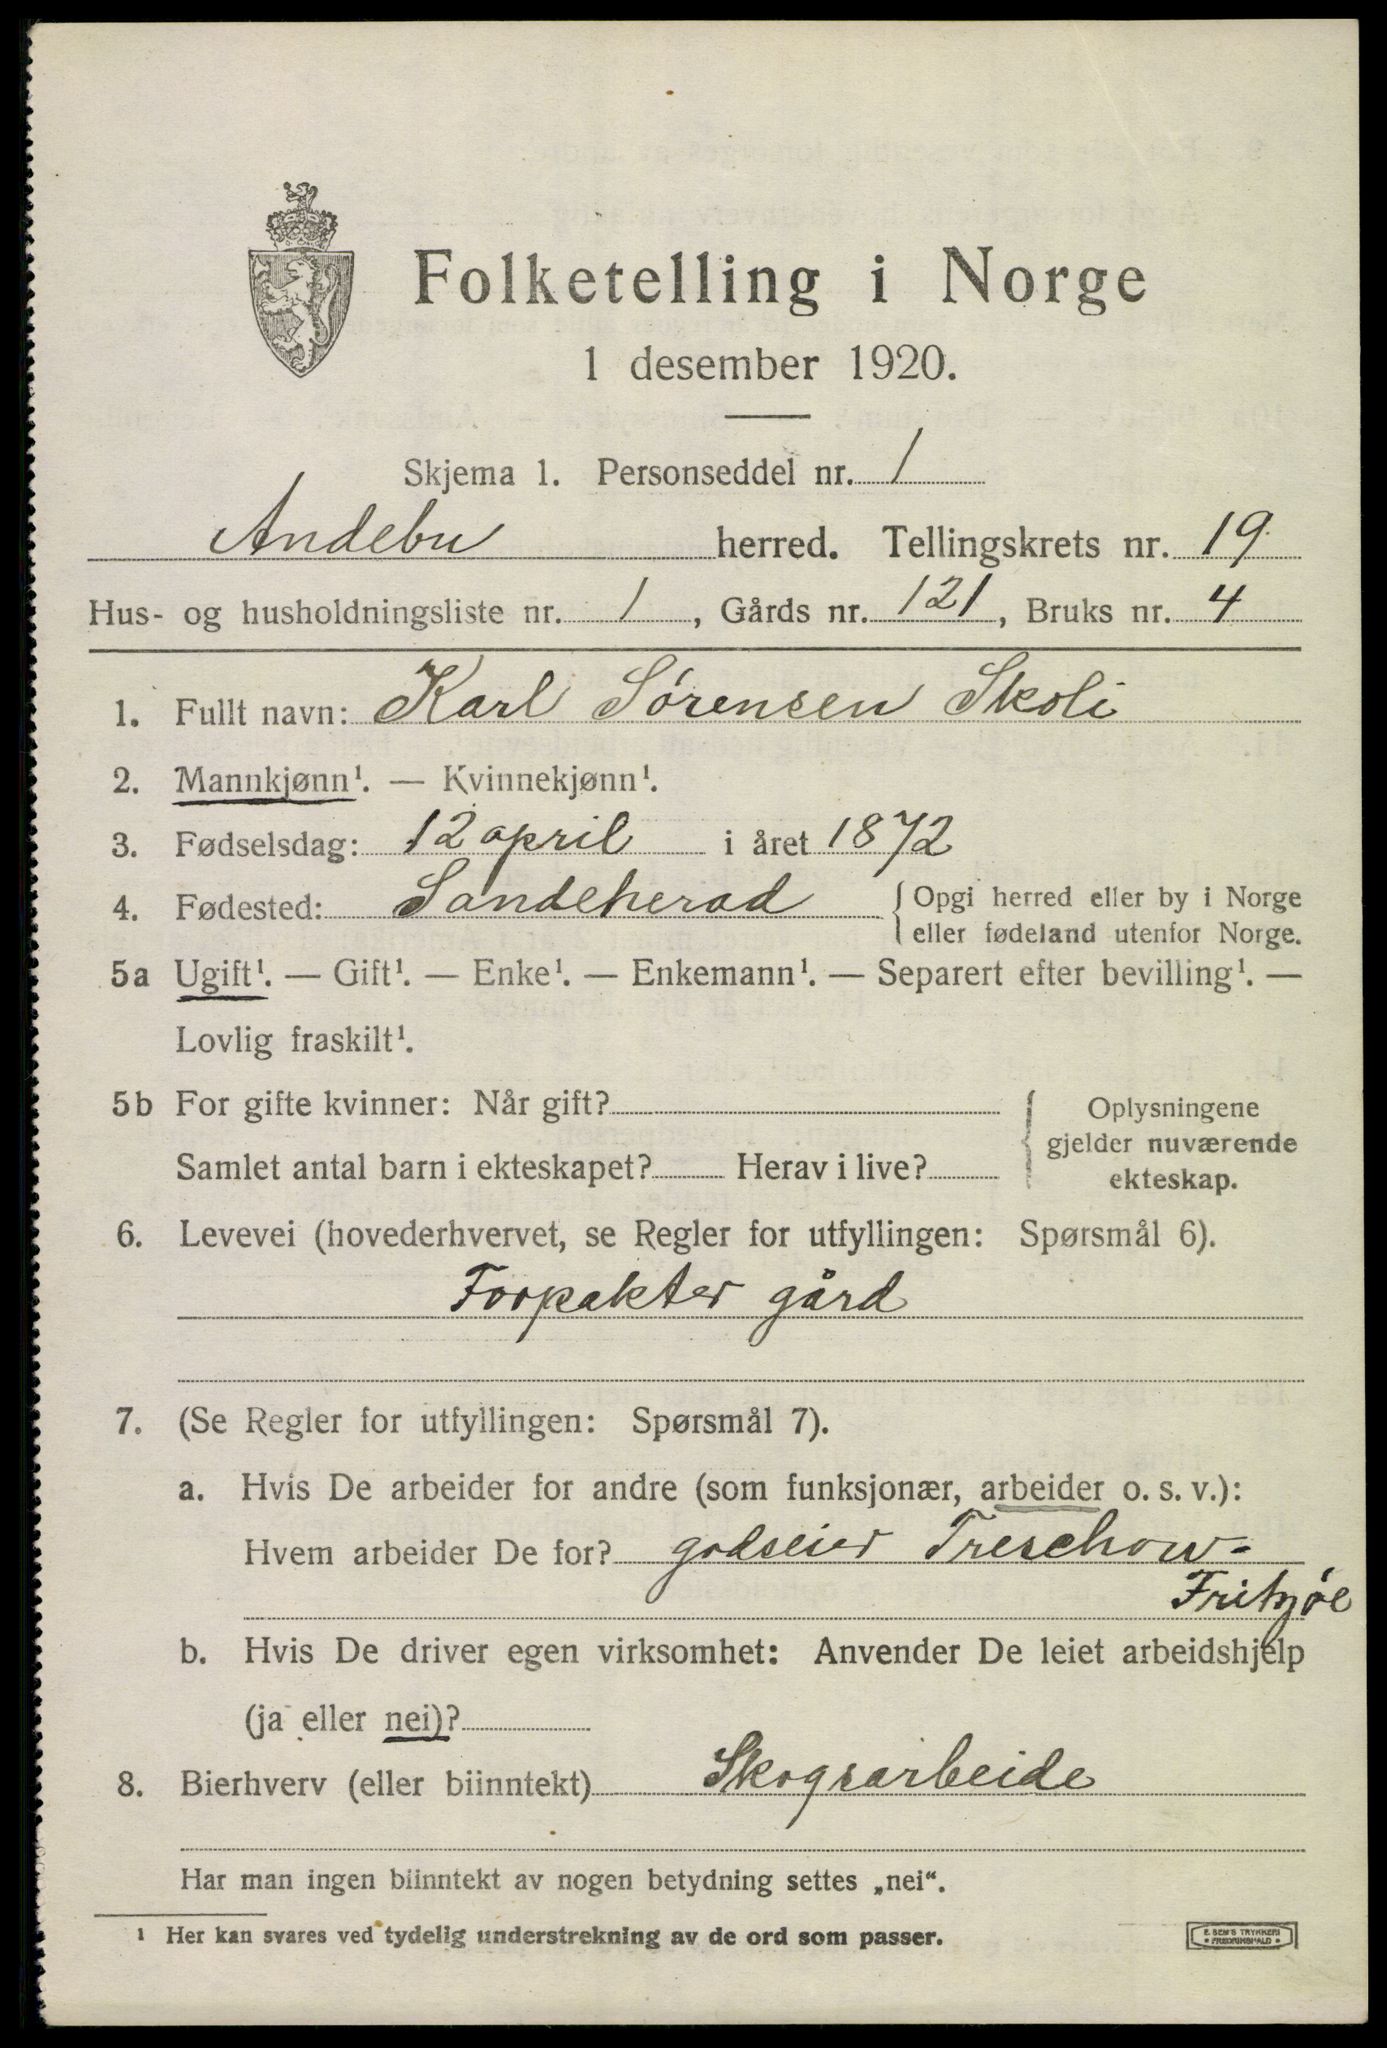 Folketelling i Norge
1 desember 1920.
Skjema 1. Personseddel nr. 1
Andebu herred. Tellingskrets nr. 19
Hus- og husholdningsliste nr. 1, Gårds nr. 121, Bruks nr. 4
1. Fullt navn: Karl Sørensen Skoli
2. Mannkjønn¹. — Kvinnekjønn¹.
3. Fødselsdag: 12 april i året 1872
4. Fødested: Sandeherad { Opgi herred eller by i Norge
eller fødeland utenfor Norge.
5a Ugift¹. — Gift¹. — Enke¹. — Enkemann¹. — Separert efter bevilling¹. —
Lovlig fraskilt¹.
5b For gifte kvinner: Når gift?
Samlet antal barn i ekteskapet? Herav i live?
{ Oplysningene
gjelder nuværende
ekteskap.
6. Levevei (hovederhvervet, se Regler for utfyllingen: Spørsmål 6).
Forpakter gård
7. (Se Regler for utfyllingen: Spørsmål 7).
a. Hvis De arbeider for andre (som funksjonær, arbeider o. s. v.):
Hvem arbeider De for? godseier Treschow-
Fritzøe
b. Hvis De driver egen virksomhet: Anvender De leiet arbeidshjelp
(ja eller nei)?
8. Bierhverv (eller biinntekt) Skogsarbeide
Har man ingen biinntekt av nogen betydning settes „nei“.
¹ Her kan svares ved tydelig understrekning av de ord som passer.
E. SEM'S TRYKKERI
FREDRIKSHALD